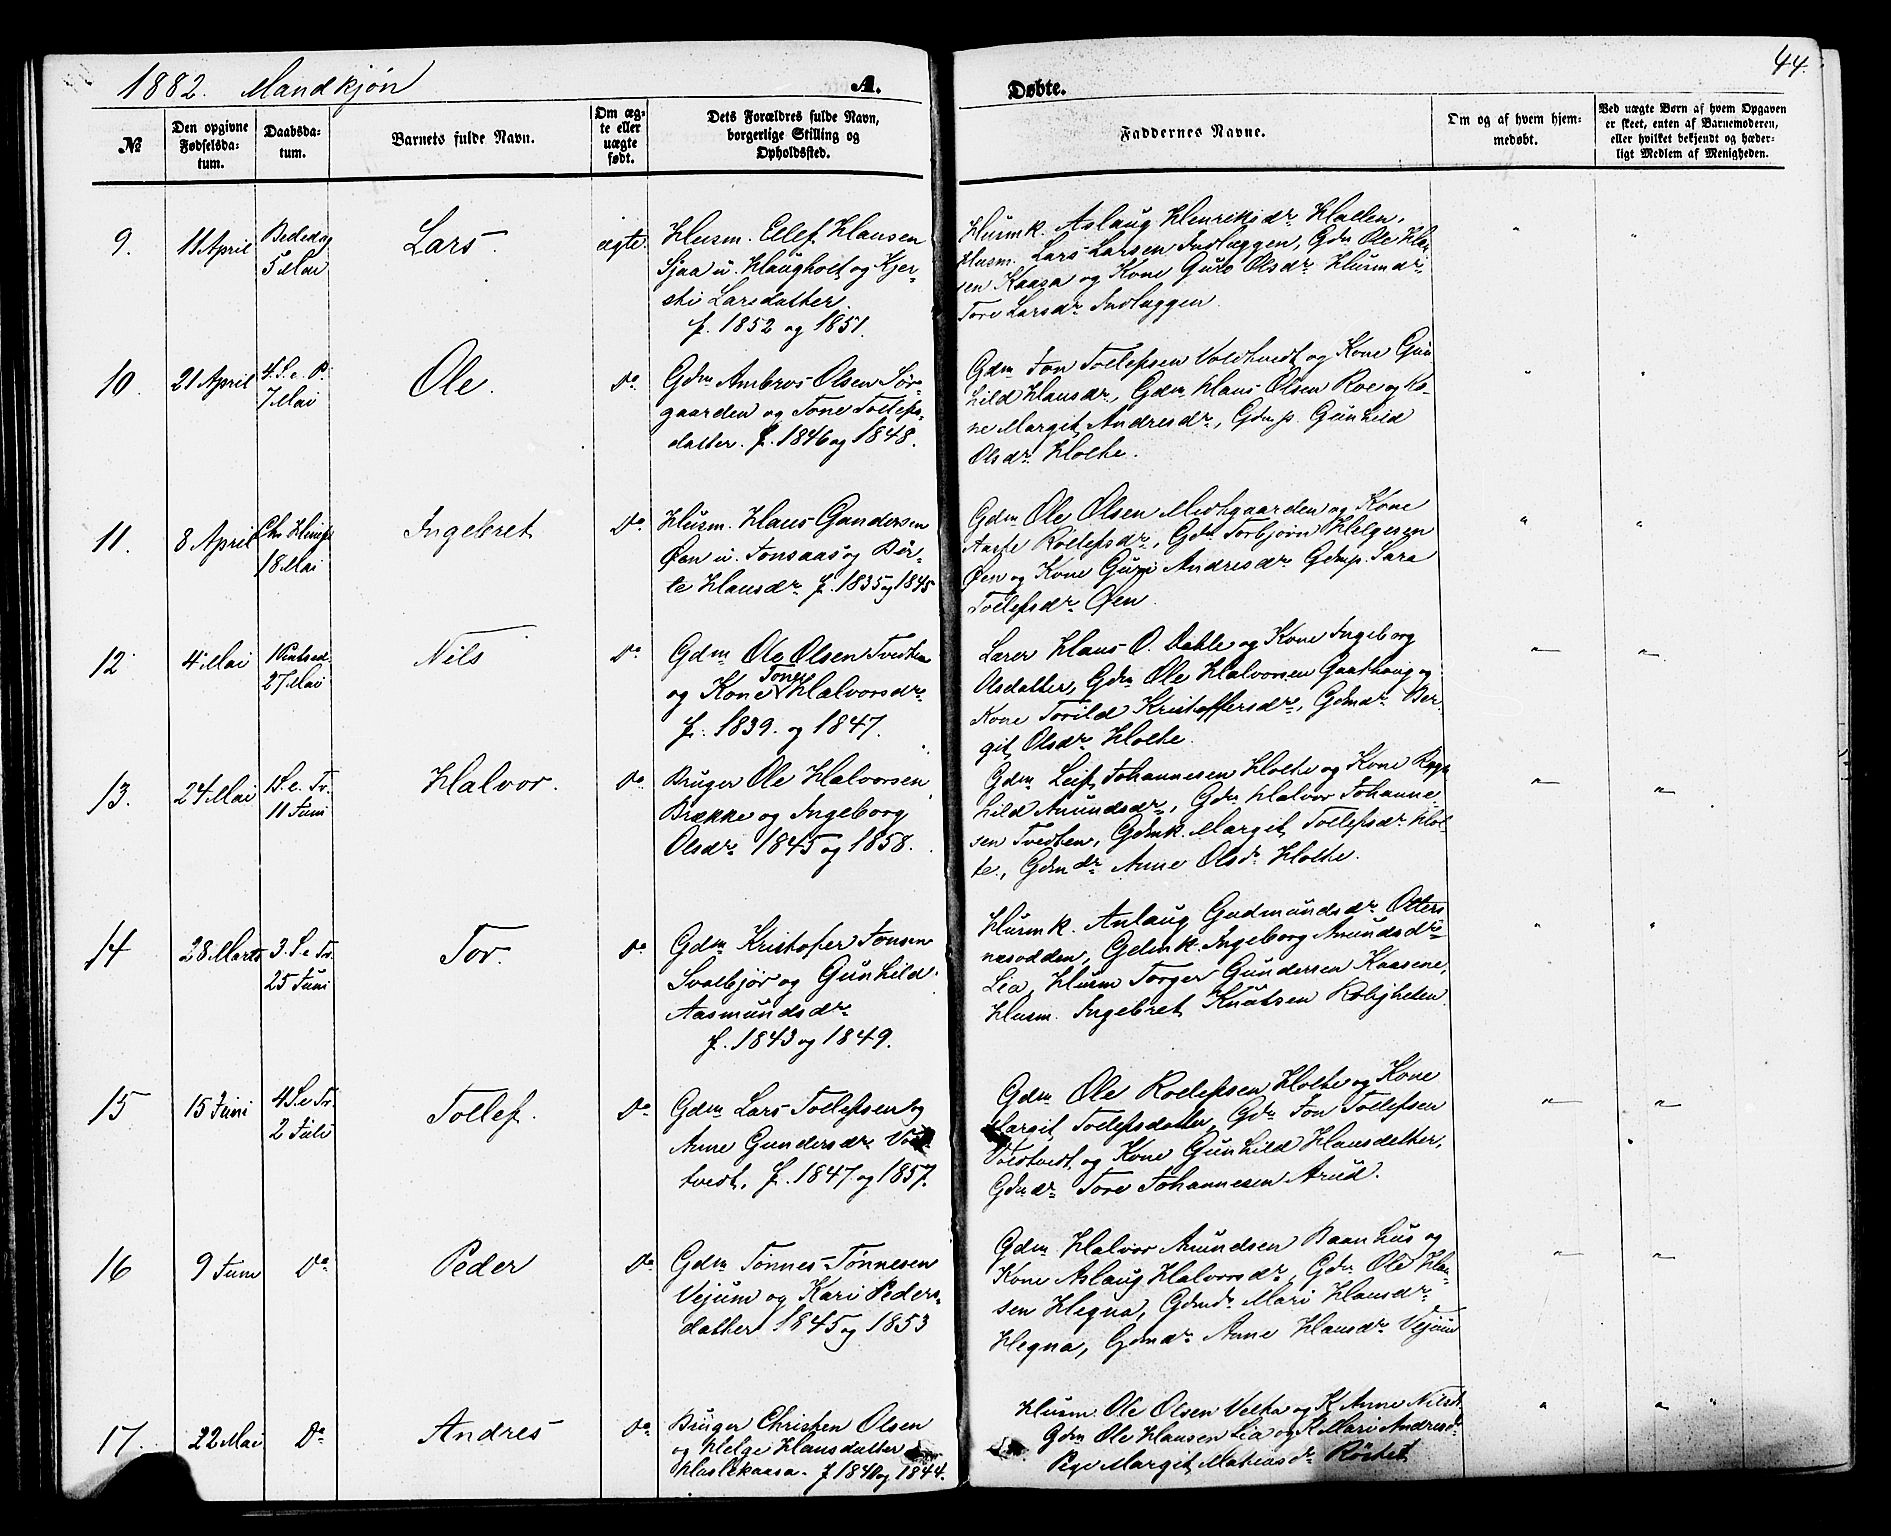 1882. Mandkjøn
A.
Døbte.
44.
№
Den opgivne
Fødselsda-
tum.
Daabsda-
tum.
Barnets fulde Navn.
Om æg-
te eller
uægte
født.
Dets Forældres fulde Navn,
borgerlige Stilling og
Opholdssted.
Faddernes Navne.
Om og af hvem hjem-
medøbt.
Ved uægte Børn af hvem Opgaven
er skeet, enten af Barnemoderen,
eller hvilket bekjendt og hæder-
ligt Medlem af Menigheden.
9.
11 April
Bededag
5 Mai
Lars.
ægte
Husm. Ellef Hansen
Sjaa u. Haugholt og Kjer-
sti Larsdatter.
f. 1852 og 1851.
Husmk. Aslaug Henriksdr. Holten,
Husm. Lars Larsen Indlæggen, Gdm Ole Han
sen Kaasa og Kone Guro Olsdr. Husmdr.
Tore Larsdr. Indlæggen.
10.
21 April
4 S. e. P.
7 Mai
Ole.
Do.
Gdm Ambros Olsen Sør-
gaarden og Tone Tollefs-
datter. f. 1846 og 1848.
Gdm Jon Tollefsen Voldtvedt og Kone Gun
hild Hansdr., Gdm Hans Olsen Roe og Ko-
ne Margit Andresdr., Gdmp. Gunhild
Olsdr. Holte.
11.
8 April
Chr. Himf.
18 Mai
Ingebret
Do.
Husm. Hans Gundersen
Øen u. Jonsaas og Bir-
te Hansdr. f. 1835 og 1845
Gdm Ole Olsen Midtgaarden og Kone
Aaste Rollefsdr., Gdm Torbjørn Helgesen
Øen og Kone Guri Andresdr. Gdmp. Sara
Tollefsdr. Øen.
12
4 Mai
1 Pintsed.
27 Mai
Nils
Do
Gdm Ole Olsen Tvedten
og Kone Tone Halvorsdr.
f. 1839. og 1847.
Lærer Hans O. Dahle og Kone Ingeborg
Olsdatter, Gdm Ole Halvorsen Gaathaug og
Kone Torild Kristoffersdr., Gdmdr. Ber-
git Olsdr. Holte.
13.
24 Mai
1 S. e. Tr.
11 Juni
Halvor.
Do.
Bruger Ole Halvorsen
Brække og Ingeborg
Olsdr. 1845 og 1858.
Gdm Leif Johannesen Holte og Kone Ragn
hild Amundsdr., Gdm Halvor Johanne-
sen Tvedten, Gdmk. Margit Tollefsdr. Hol-
te, Gdmdr. Anne Olsdr. Holte.
14
28 Marts
3. S. e. Tr.
25 Juni
Tor.
Do.
Gdm Kristofer Jonsen
Svalbjør og Gunhild
Aasmundsdr.
f. 1843 og 1849.
Husmk. Anlaug Gudmundsdr. Otters
næsodden, Gdmk. Ingeborg Amundsdr.
Lia, Husm Torger Gundersen Kaasene,
Husm. Ingebret Knutsen Roligheten.
15
15 Juni
4 S. e. Tr.
2 Juli
Tollef.
Do
Gdm Lars Tollefsen og
Anne Gundersdr.
tvedt, f. 1847 og 1857.
Gdm Ole Rollefsen Holte og Kone
Margit Tollefsdatter, Gdm Jon Tollefsen
Voldtvedt og Kone Gunhild Hansdatter,
Gdmdr. Tore Johannesen Arud.
16
9 Juni
Do
Peder
Do.
Gdm Tønnes Tønnesen
Vejum og Kari Peders-
datter 1845 og 1853
Gdm Halvor Amundsen Baanhus og
Kone Aslaug Halvorsdr., Gdm Ole Han-
sen Hegna, Gdmdr. Mari Hansdr.
Hegna, Gdmdr. Anne Hansdr. Vejum
17.
22 Mai
Do
Andres
Do
Bruger Christen Olsen
og Helge Hansdatter
Haslekaasa. f 1840 og 1844.
Husm Ole Olsen Velta og K. Anne Nilsdr
Gdm Ole Hansen Lia og K Mari Andresdr.
Pige Margit Mathisdr. Rosthet